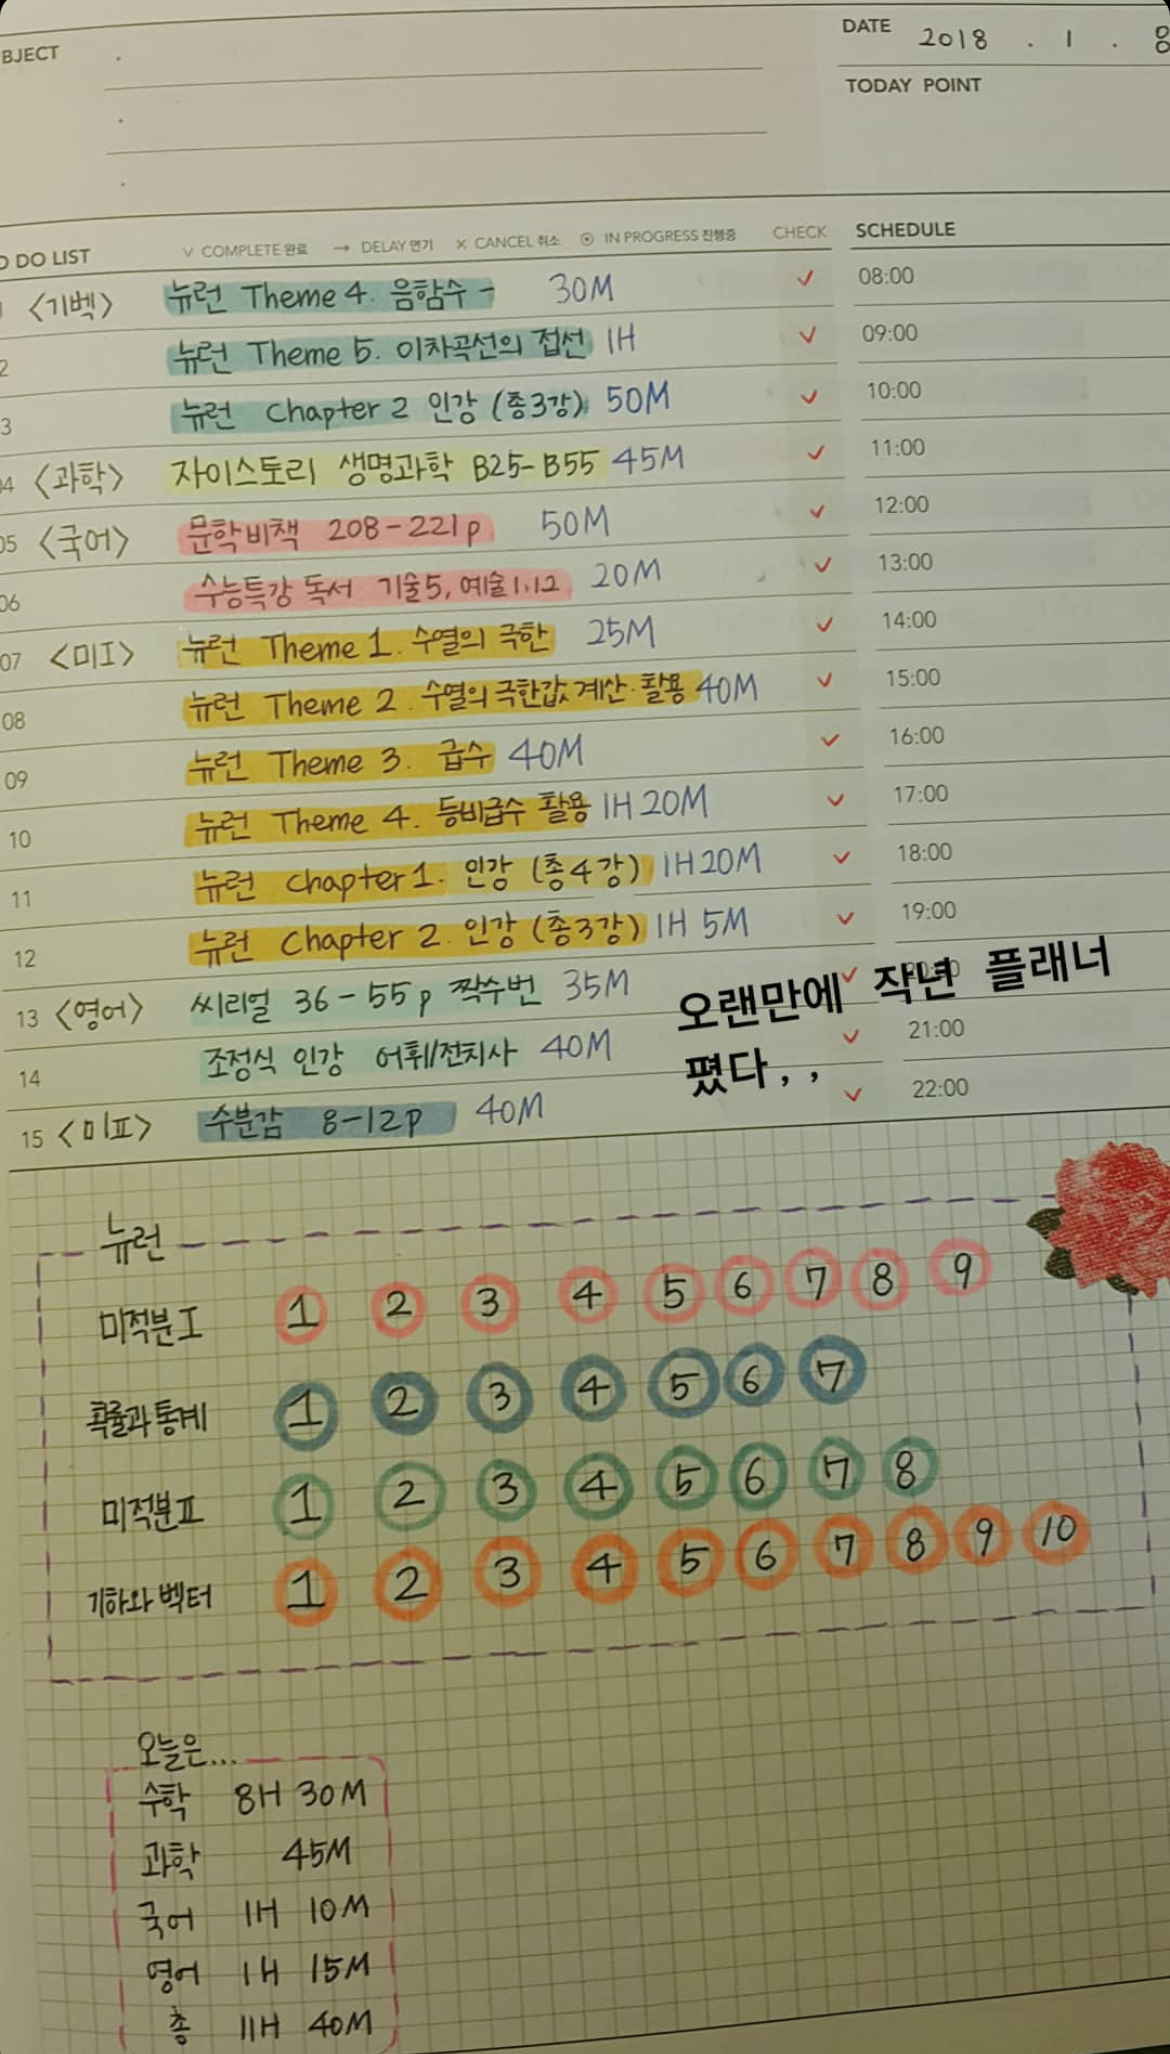 BJECT
DATE 2018 . 1 . 8
TODAY POINT
O DO LIST V COMPLETE 완료 → DELAY 연기 X CANCEL 취소 ⊙ IN PROGRESS 진행중 CHECK SCHEDULE
1 <기벡> 뉴런 Theme 4. 음함수 - 30M ✓ 08:00
2 뉴런 Theme 5. 이차곡선의 접선 1H ✓ 09:00
3 뉴런 Chapter 2 인강 (총3강) 50M ✓ 10:00
04 <과학> 자이스토리 생명과학 B25-B55 45M ✓ 11:00
05 <국어> 문학비책 208-221p 50M ✓ 12:00
06 수능특강 독서 기술5, 예술1,12 20M ✓ 13:00
07 <미I> 뉴런 Theme 1. 수열의 극한 25M ✓ 14:00
08 뉴런 Theme 2. 수열의 극한값 계산·활용 40M ✓ 15:00
09 뉴런 Theme 3. 급수 40M ✓ 16:00
10 뉴런 Theme 4. 등비급수 활용 1H 20M ✓ 17:00
11 뉴런 Chapter 1. 인강 (총4강) 1H 20M ✓ 18:00
12 뉴런 Chapter 2. 인강 (총3강) 1H 5M ✓ 19:00
13 <영어> 씨리얼 36-55p 짝수번 35M ✓ 20:00
오랜만에 작년 플래너
폈다, ,
14 조정식 인강 어휘/전치사 40M ✓ 21:00
15 <미II> 수분감 8-12p 40M ✓ 22:00
뉴런
미적분I 1 2 3 4 5 6 7 8 9
확률과 통계 1 2 3 4 5 6 7
미적분II 1 2 3 4 5 6 7 8
기하와 벡터 1 2 3 4 5 6 7 8 9 10
오늘은...
수학 8H 30M
과학 45M
국어 1H 10M
영어 1H 15M
총 11H 40M